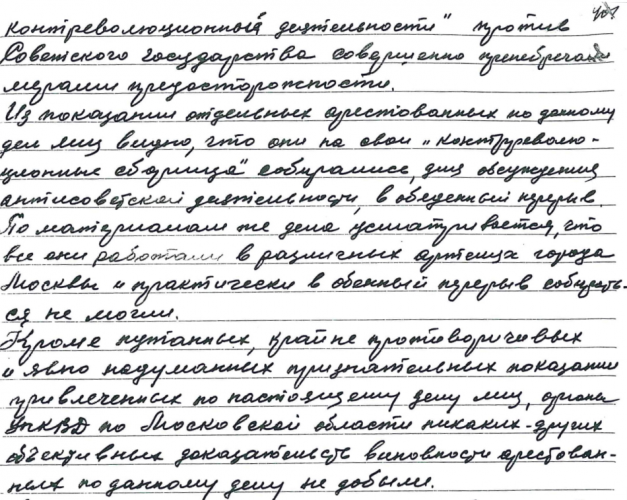 контреволюционной деятельности" против
Советского государства совершенно пренебрегали
мерами предосторожности.
Из показаний отдельных арестованных по данному
делу лиц видно, что они на свои „контрреволю-
ционные сборища" собирались, для обсуждения
антисоветской деятельности, в обеденный перерыв.
По материалам же дела усматривается, что
все они работали в различных артелях города
Москвы и практически в обенный перерыв собирать-
ся не могли.
Кроме путанных, крайне противоричивых
и явно надуманных признательных показаний
привлеченных по настоящему делу лиц, органы
УНКВД по Московской области никаких-других
объективных доказательств виновности арестован-
ных по данному делу не добыли.